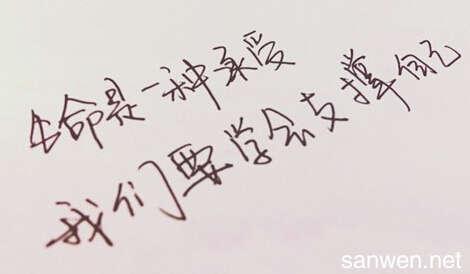 生命是一种承受
我们要学会支撑自己
sanwen.net